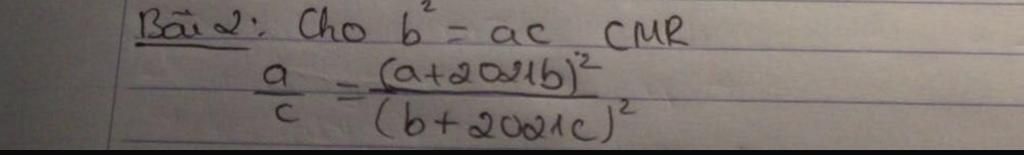 Bài 2: Cho b² = ac CMR
a/c = (a+2021b)²/(b+2021c)²